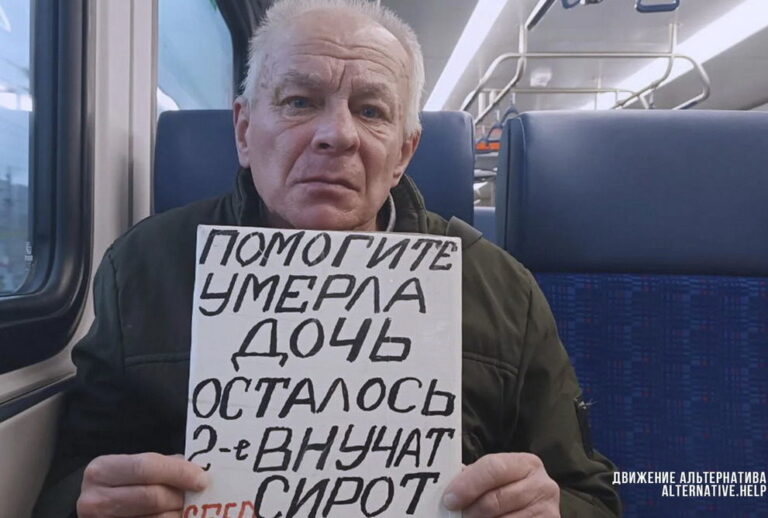 ПОМОГИТЕ
УМЕРЛА
ДОЧЬ
ОСТАЛОСЬ
2-е ВНУЧАТ
СИРОТ
ДВИЖЕНИЕ АЛЬТЕРНАТИВА
ALTERNATIVE.HELP